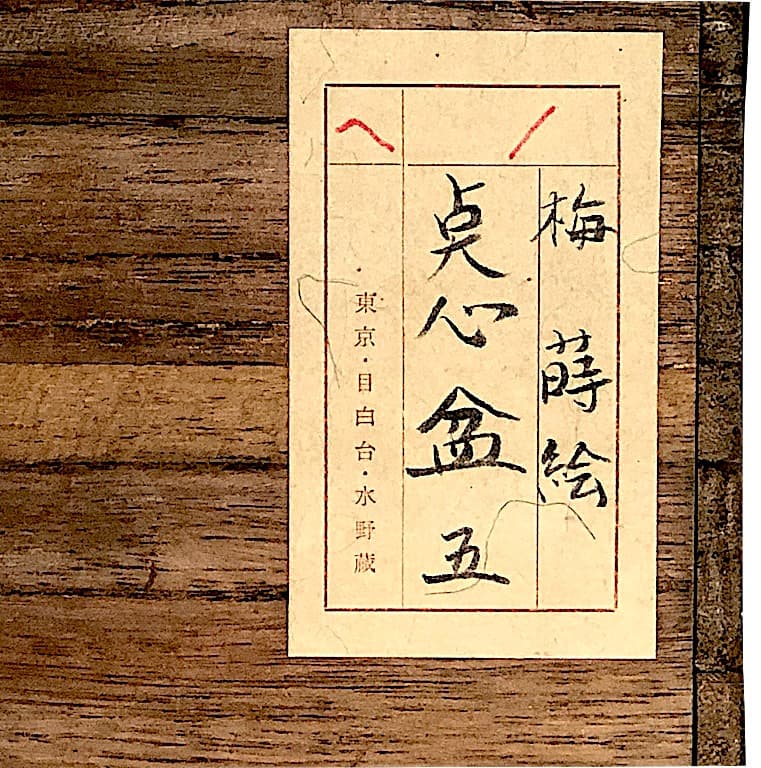 梅蒔絵
点心盆五
東京・目白台・水野蔵